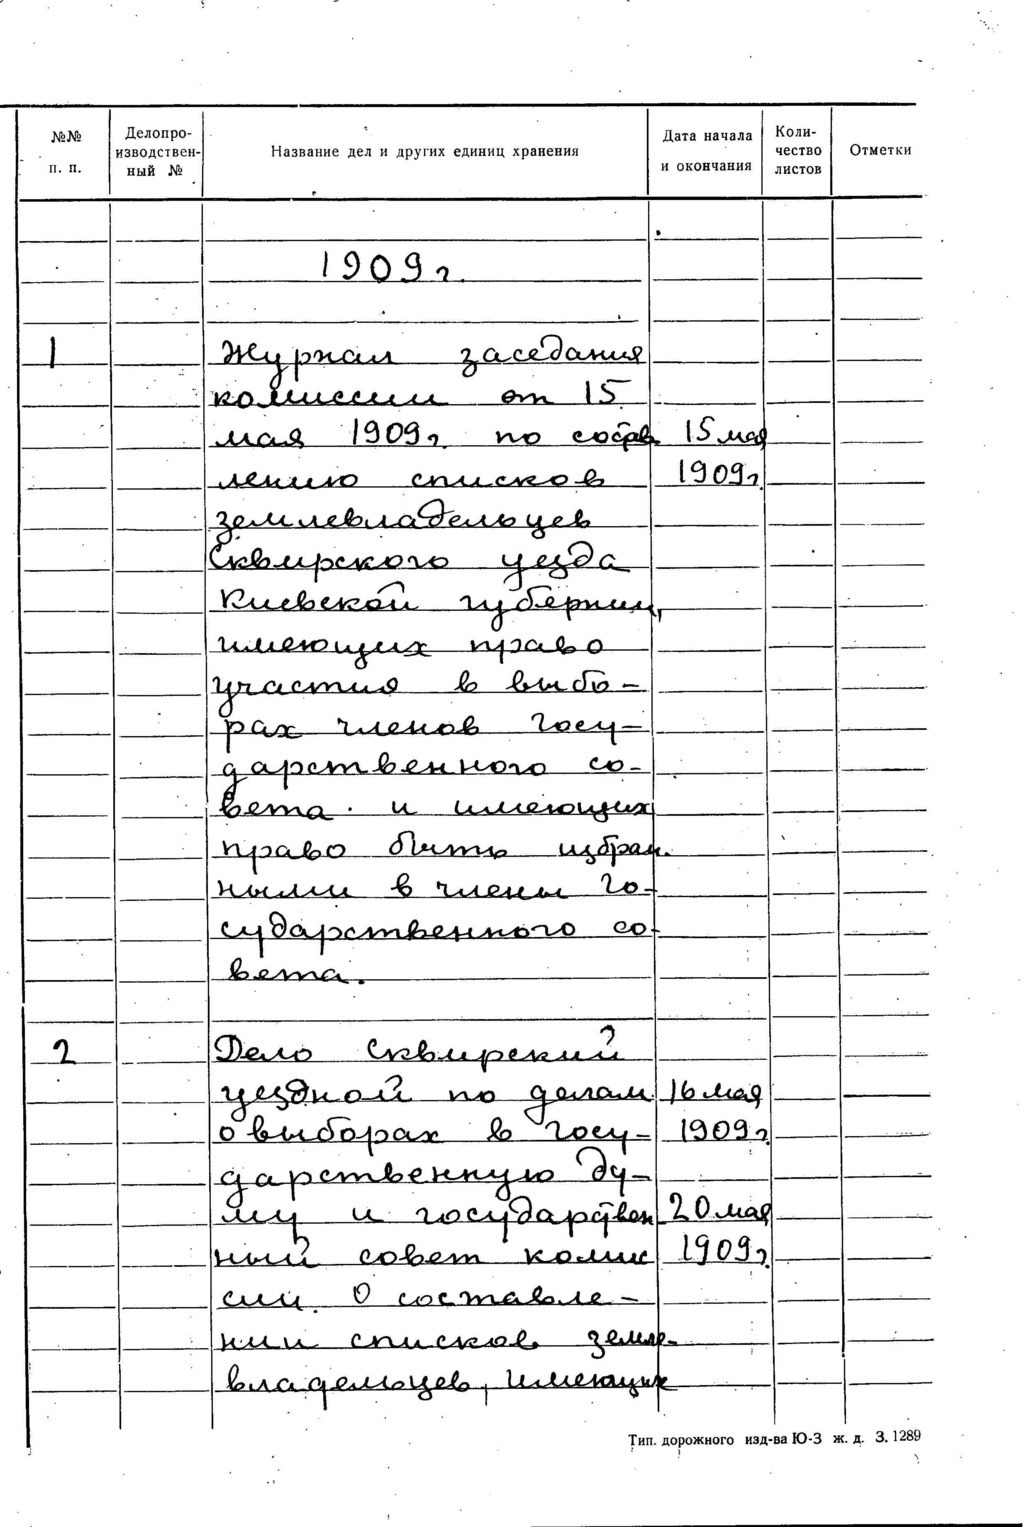 №№ п. п.
Делопро-
изводствен-
ный №
Название дел и других единиц хранения
Дата начала
и окончания
Коли-
чество
листов
Отметки
1909 г.
1 Журнал заседания
комиссии от 15
мая 1909 г. по состав 15 мая
лению списков 1909 г.
землевладельцев
Сквирского уезда
Киевской губернии,
имеющих право
участия в выбо-
рах членов Госу-
дарственного со-
вета и имеющих
право быть избран-
ными в члены Го-
сударственного со-
вета.
2 Дело Сквирский
уездной по делам 16 мая
о выборах в Госу- 1909 г.
дарственную Ду-
му и государствен 20 мая
ный совет комис 1909 г.
сии. О составле-
нии списков земле-
владельцев, имеющих
Тип. дорожного изд-ва Ю-З ж. д. З. 1289